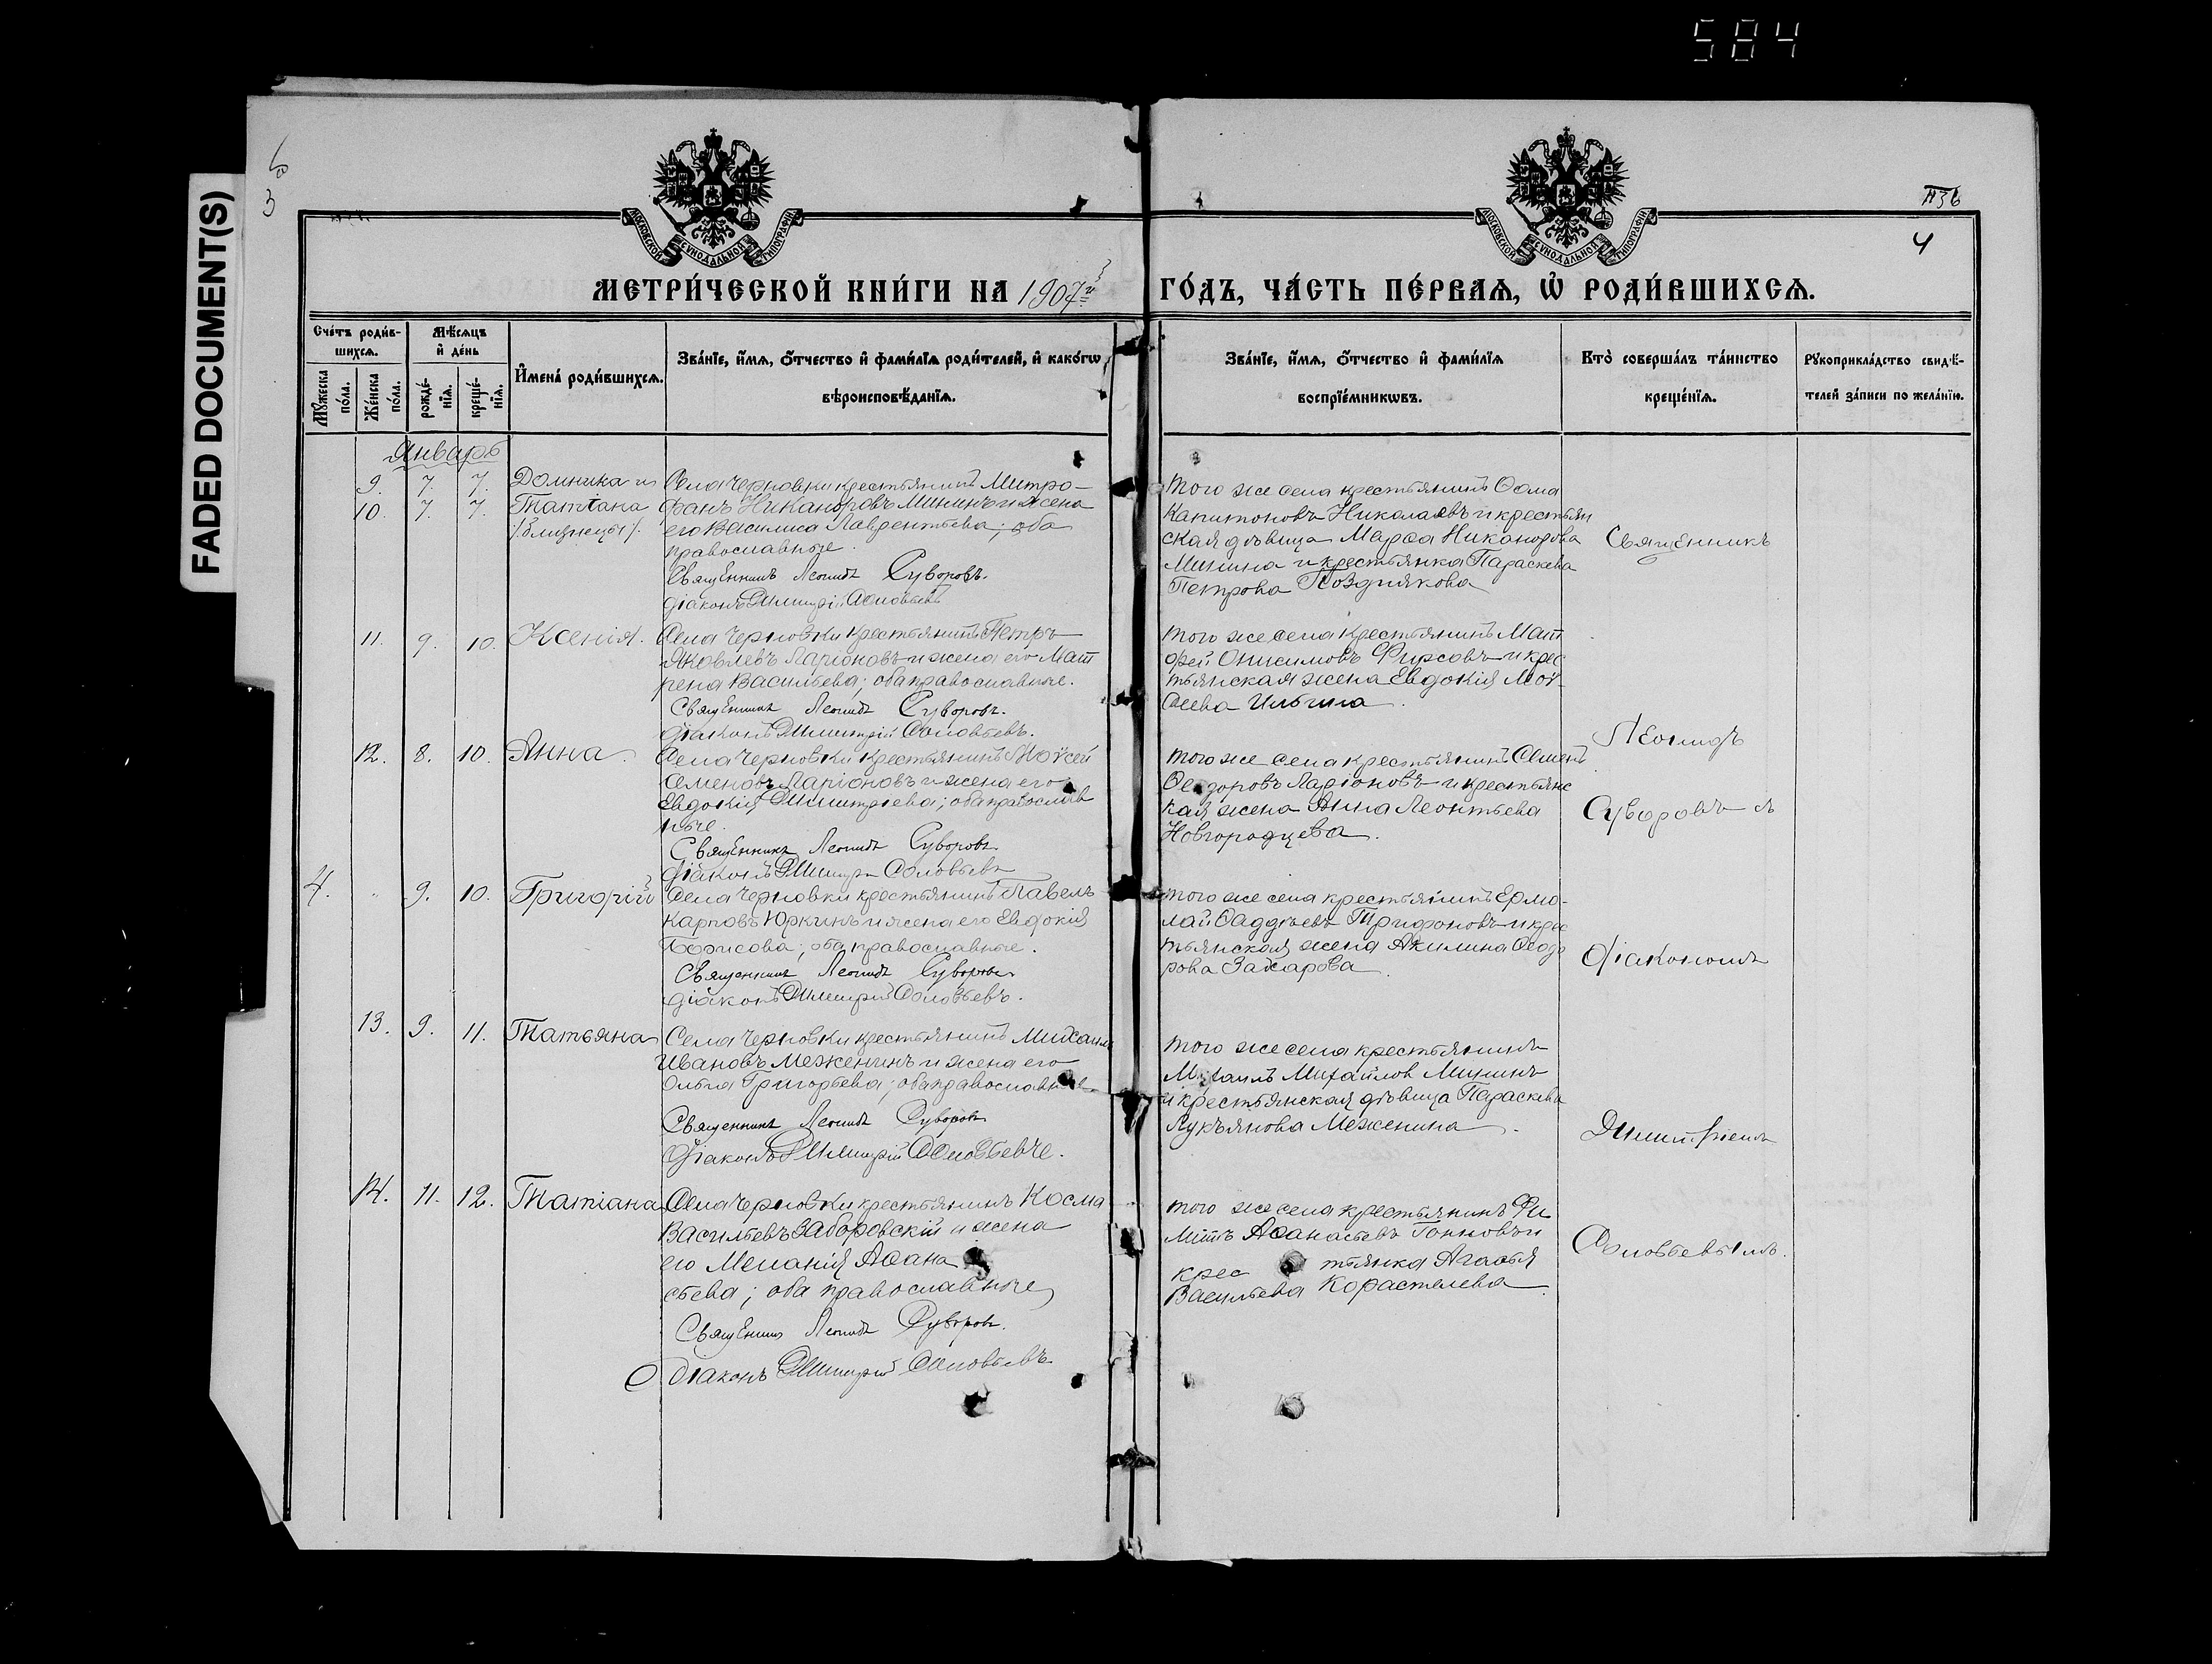 584
FADED DOCUMENT(S)
3
4
МОСКОВСКОЙ СѴНОДАЛЬНОЙ ТИПОГРАФІИ
МОСКОВСКОЙ СѴНОДАЛЬНОЙ ТИПОГРАФІИ
МЕТРИ́ЧЕСКОЙ КНИ́ГИ НА 1907й
ГО́ДЪ, ЧА́СТЬ ПЕ́РВАѦ, Ѡ РОДИ́ВШИХСѦ.
Сче́тъ роди́в-
шихсѧ.
Мꙋжеска по́ла.
Же́нска по́ла.
Мѣ́сѧцъ
и҆ де́нь
рожде́-
нїѧ.
креще́-
нїѧ.
И҆мена̀ роди́вшихсѧ.
Зва́нїе, и҆́мѧ, ѻ҆́тчество и҆ фами́лїѧ роди́телей, и҆ како́гѡ
вѣроисповѣ́данїѧ.
Зва́нїе, и҆́мѧ, ѻ҆́тчество и҆ фами́лїѧ
воспрїе́мникѡвъ.
Кто̀ соверша́лъ та́инство
креще́нїѧ.
Рꙋкоприкла́дство свидѣ́-
телей за́писи по жела́нїю.
Январь
9. 7. 7. Домника и
10. 7. 7. Татіана
/близнецы/.
Села Черновки крестьянинъ Митро-
фанъ Никаноровъ Мининъ и жена
его Василиса Лаврентьева; оба
православные.
Священникъ Леонидъ Суворовъ.
діаконъ Димитрій Соловьевъ
того же села крестьянинъ Ѳома
Капитоновъ Николаевъ и крестьян
ская дѣвица Марѳа Никанорова
Минина и крестьянка Параскева
Петрова Позднякова
11. 9. 10. Ксенія.
Села Черновки крестьянинъ Петръ
Яковлевъ Ларіоновъ и жена его Мат
рена Васильева; оба православные.
Священникъ Леонидъ Суворовъ.
діаконъ Димитрій Соловьевъ.
того же села крестьянинъ Мат
ѳей Онисимовъ Фирсовъ и крес
тьянская жена Евдокія Мои
сеева Ильина.
12. 8. 10. Анна.
Села Черновки крестьянинъ Моѵсей
Семеновъ Ларіоновъ и жена его
Евдокія Димитріева; оба православ
ные.
Священникъ Леонидъ Суворовъ
діаконъ Димитрій Соловьевъ
того же села крестьянинъ Семенъ
Ѳеодоровъ Ларіоновъ и крестьянс
кая жена Анна Леонтьева
Новгородцева.
4. 9. 10. Григорій
Села Черновки крестьянинъ Павелъ
Карповъ Юркинъ и жена его Евдокія
Борисова; оба православные.
Священникъ Леонидъ Суворовъ
діаконъ Димитрій Соловьевъ.
того же села крестьянинъ Ермо-
лай Ѳаддѣевъ Трифоновъ и крес
тьянская жена Акилина Ѳеодо
рова Захарова.
13. 9. 11. Татьяна
Села Черновки крестьянинъ Михаилъ
Ивановъ Меженинъ и жена его
Ольга Григорьева; оба православные
Священникъ Леонидъ Суворовъ
Діаконъ Димитрій Соловьевъ.
того же села крестьянинъ
Михаилъ Михайловъ Мининъ
и крестьянская дѣвица Параскева
Лукъянова Меженина.
14. 11. 12. Татіана
Села Черновки крестьянинъ Косма
Васильевъ Заборовскій и жена
его Меланія Аѳана
сьева; оба православные
Священникъ Леонидъ Суворовъ.
діаконъ Димитрій Соловьевъ
того же села крестьянинъ Фи
липъ Аѳанасьевъ и
крес тьянка Агаѳья
Васильева Корастелева.
Священникъ
Леонидъ
Суворовъ съ
діакономъ
Димитріемъ
Соловьевымъ.